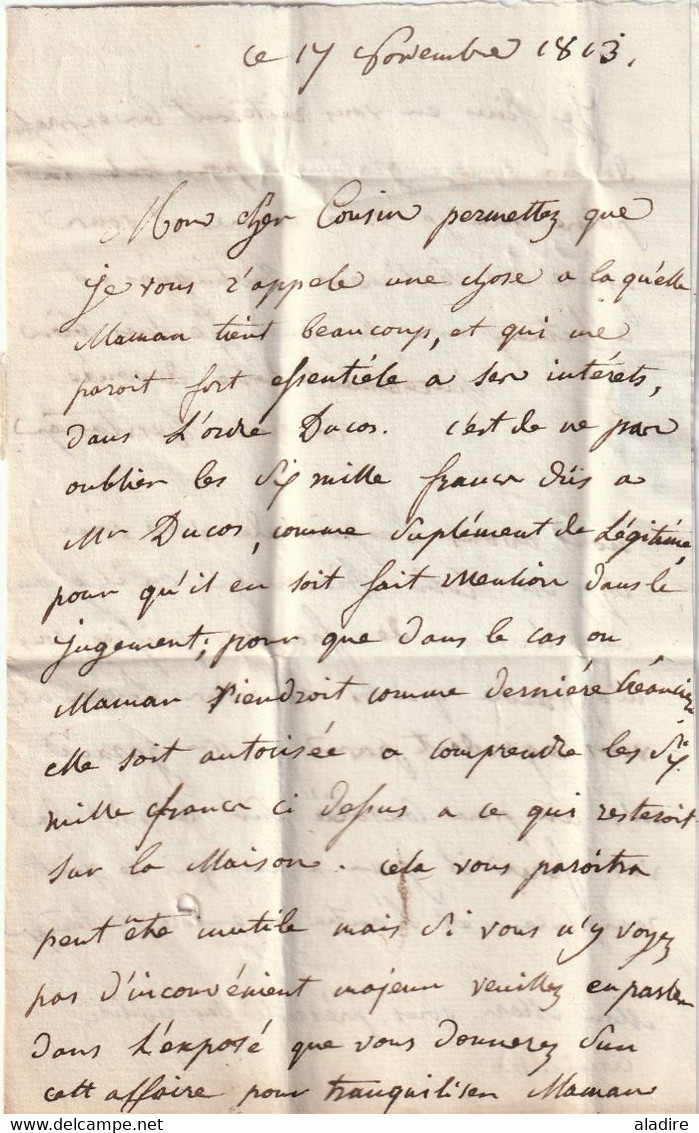 ce 17 Novembre 1813.
Mon cher Cousin permettez que
je vous r'appele une chose a la qu'elle
Maman tient beaucoup, et qui me
paroit fort essentiéle a ses intérets,
dans L'ordre Ducos. c'est de ne pas
oublier les Six mille francs dûs a
Mr Ducos, comme Suplément de Légitime,
pour qu'il en soit fait Mention dans le
jugement; pour que dans le cas ou
Maman viendroit comme derniére Créanciere
elle soit autorisée a comprendre les Six
mille francs ci dessus a ce qui resteroit
sur la Maison. cela vous paroitra
peut être inutile mais Si vous n'y voyez
pas d'inconvénient majeur veuillez en parler
dans L'exposé que vous donnerez Sur
cett affaire pour tranquiliser Maman
© aladire